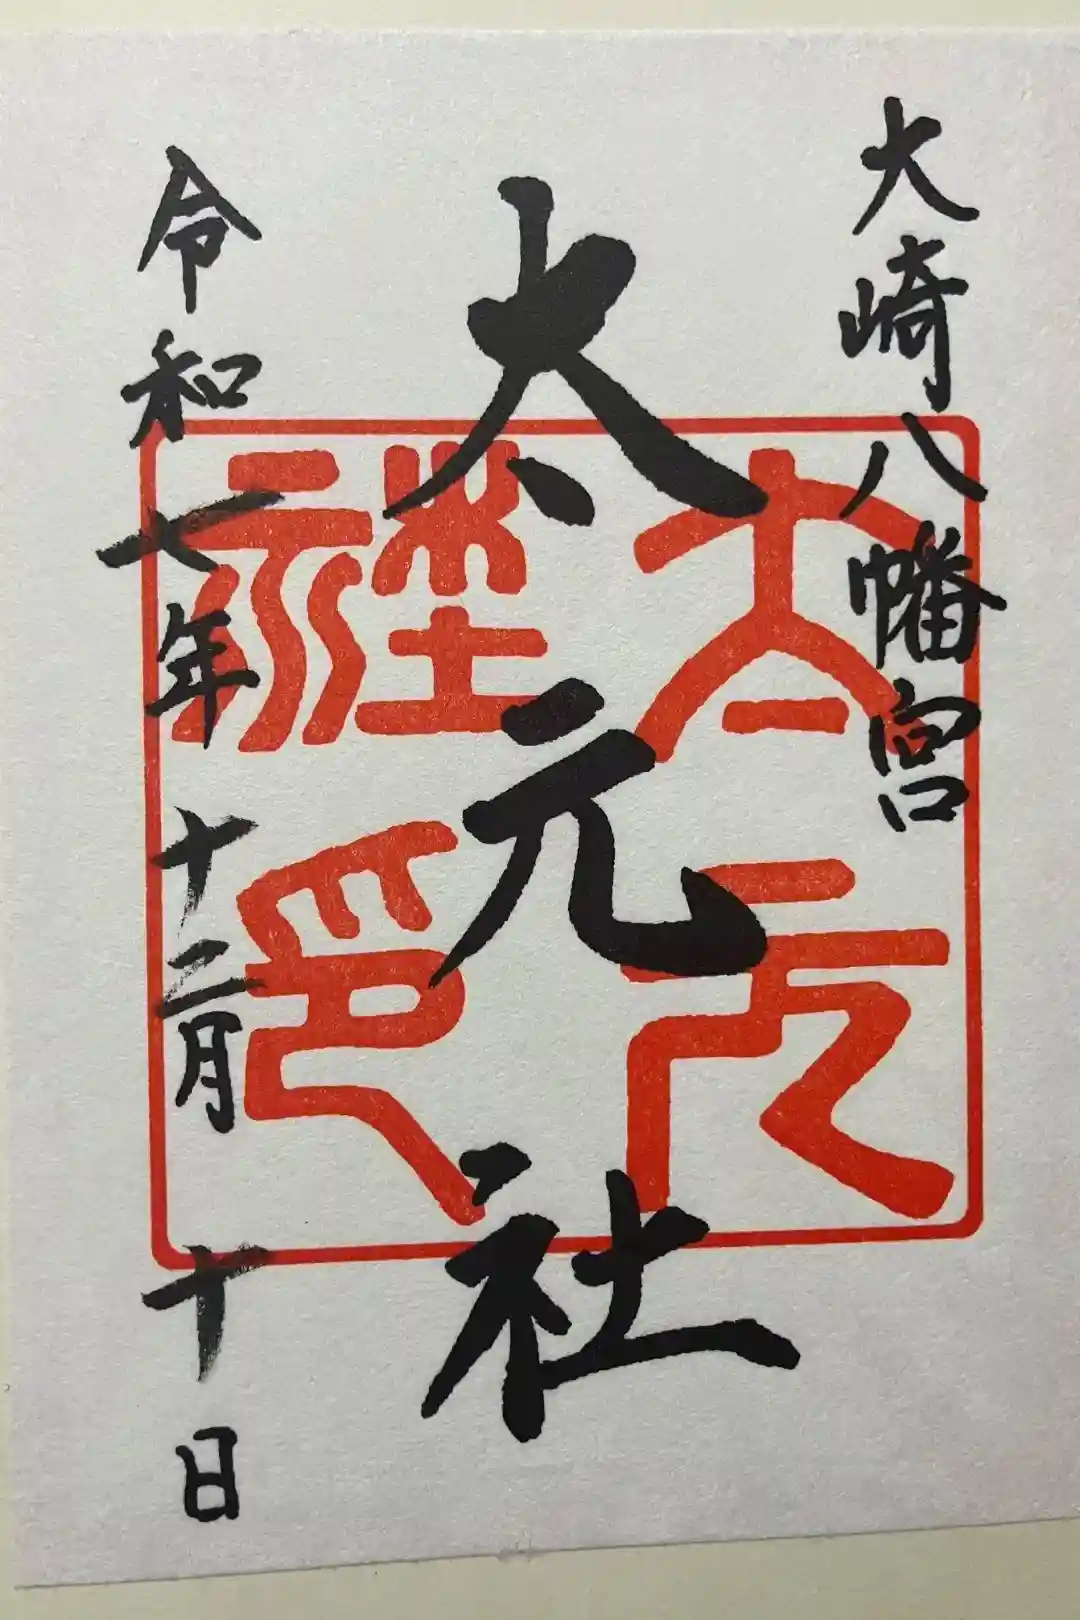 大崎八幡宮
太元社
令和七年十二月十日
太元社印